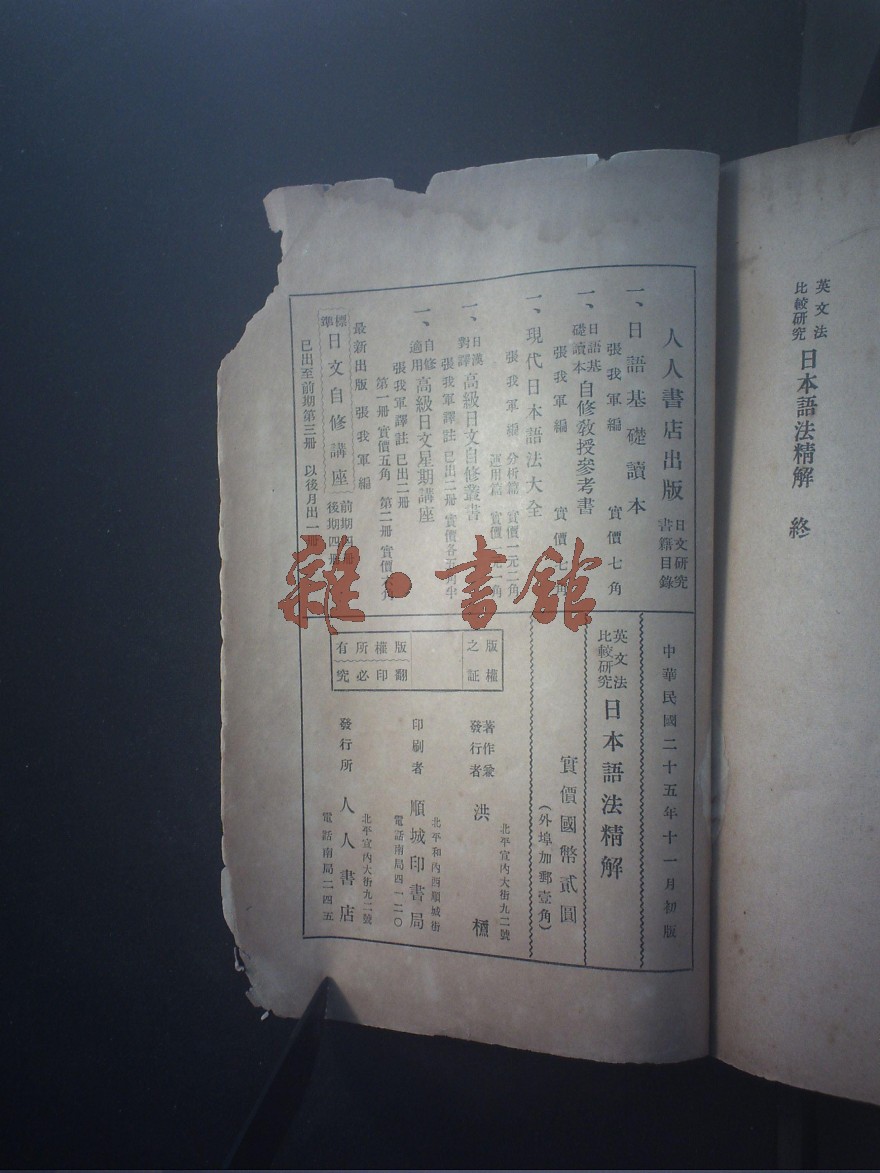 英文法
比較研究
日本語法精解 終
人人書店出版
日文研究
書籍目錄
一、日語基礎讀本
張我軍編 實價七角
一、日語基
礎讀本
自修教授參考書
張我軍編 實價七角
一、現代日本語法大全
張我軍編
分析篇 實價一元二角
運用篇 實價
一、日漢
對譯
高級日文自修叢書
張我軍譯註 已出二冊 實價各五角半
一、自修
適用
高級日文星期講座
張我軍譯註 已出二冊
第一冊 實價五角 第二冊 實價
最新出版 張我軍編
標準
日文自修講座
前期
後期四冊
已出至前期第三冊 以後月出一冊
雜·書館
中華民國二十五年十一月初版
英文法
比較研究
日本語法精解
實價國幣貳圓
(外埠加郵壹角)
版權
之証
版權所有
翻印必究
北平宣內大街九二號
著作兼
發行者
洪
北平和內西順城街
印刷者 順城印書局
電話南局四一二〇
北平宣內大街九二號
發行所 人人書店
電話南局二四五